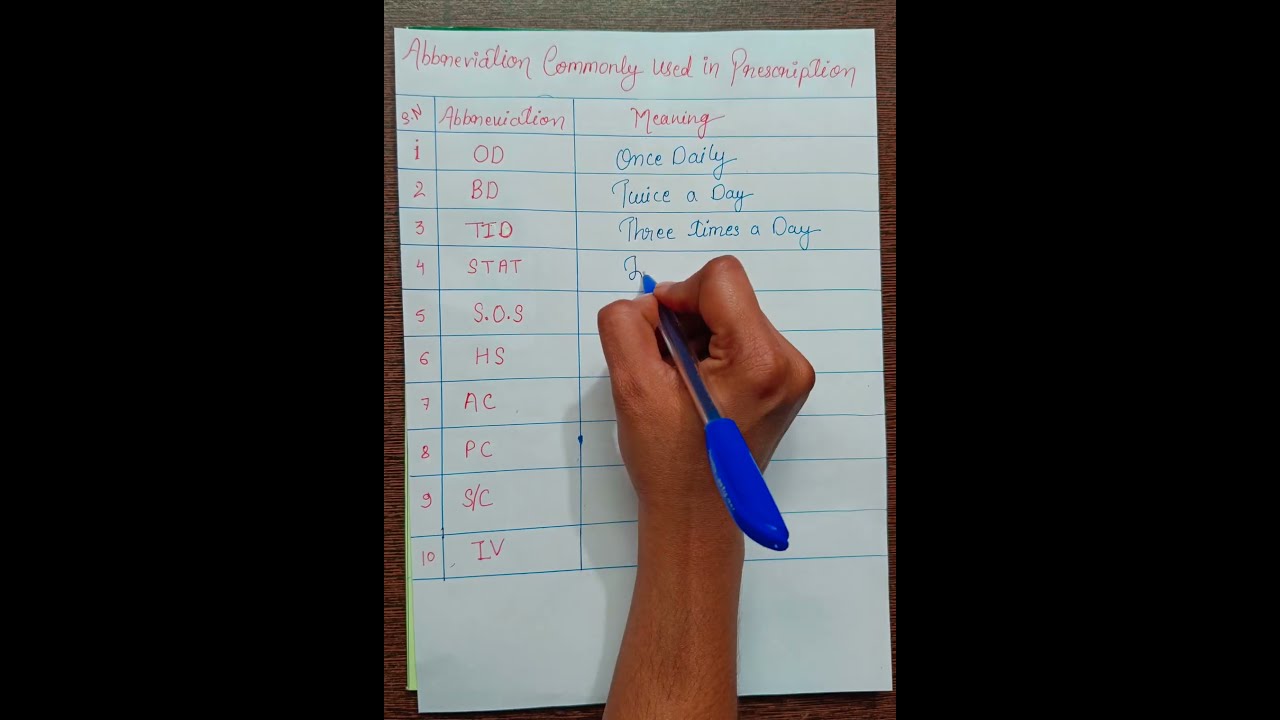 Abbreviation Commonly used in Prescription
SN Abbreviation Meaning
1 OD One Daily
2 BD Twice a Day
3 TID Three times a Day
4 STAT
5 S.O.S
6 HS
7 AC
8 PC
9 S/C
10 IV